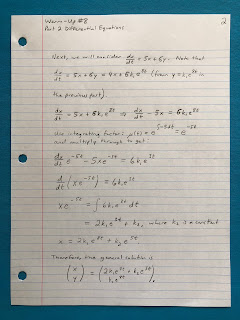 Warm-Up #8
Part 2 Differential Equations
2
Next, we will consider dx/dt = 5x + 6y. Note that
dx/dt = 5x + 6y = 5x + 6k₁e^{8t} (from y = k₁e^{8t} in
the previous part).
dx/dt = 5x + 6k₁e^{8t} ⇒ dx/dt - 5x = 6k₁e^{8t}
Use integrating factor μ(t) = e^{∫-5dt} = e^{-5t}
and multiply through to get:
dx/dt e^{-5t} - 5xe^{-5t} = 6k₁e^{3t}
d/dt (xe^{-5t}) = 6k₁e^{3t}
xe^{-5t} = ∫ 6k₁e^{3t} dt
= 2k₁e^{3t} + k₂, where k₂ is a constant
x = 2k₁e^{8t} + k₂e^{5t}
Therefore the general solution is
(x y) = (2k₁e^{8t} + k₂e^{5t} k₁e^{8t}).